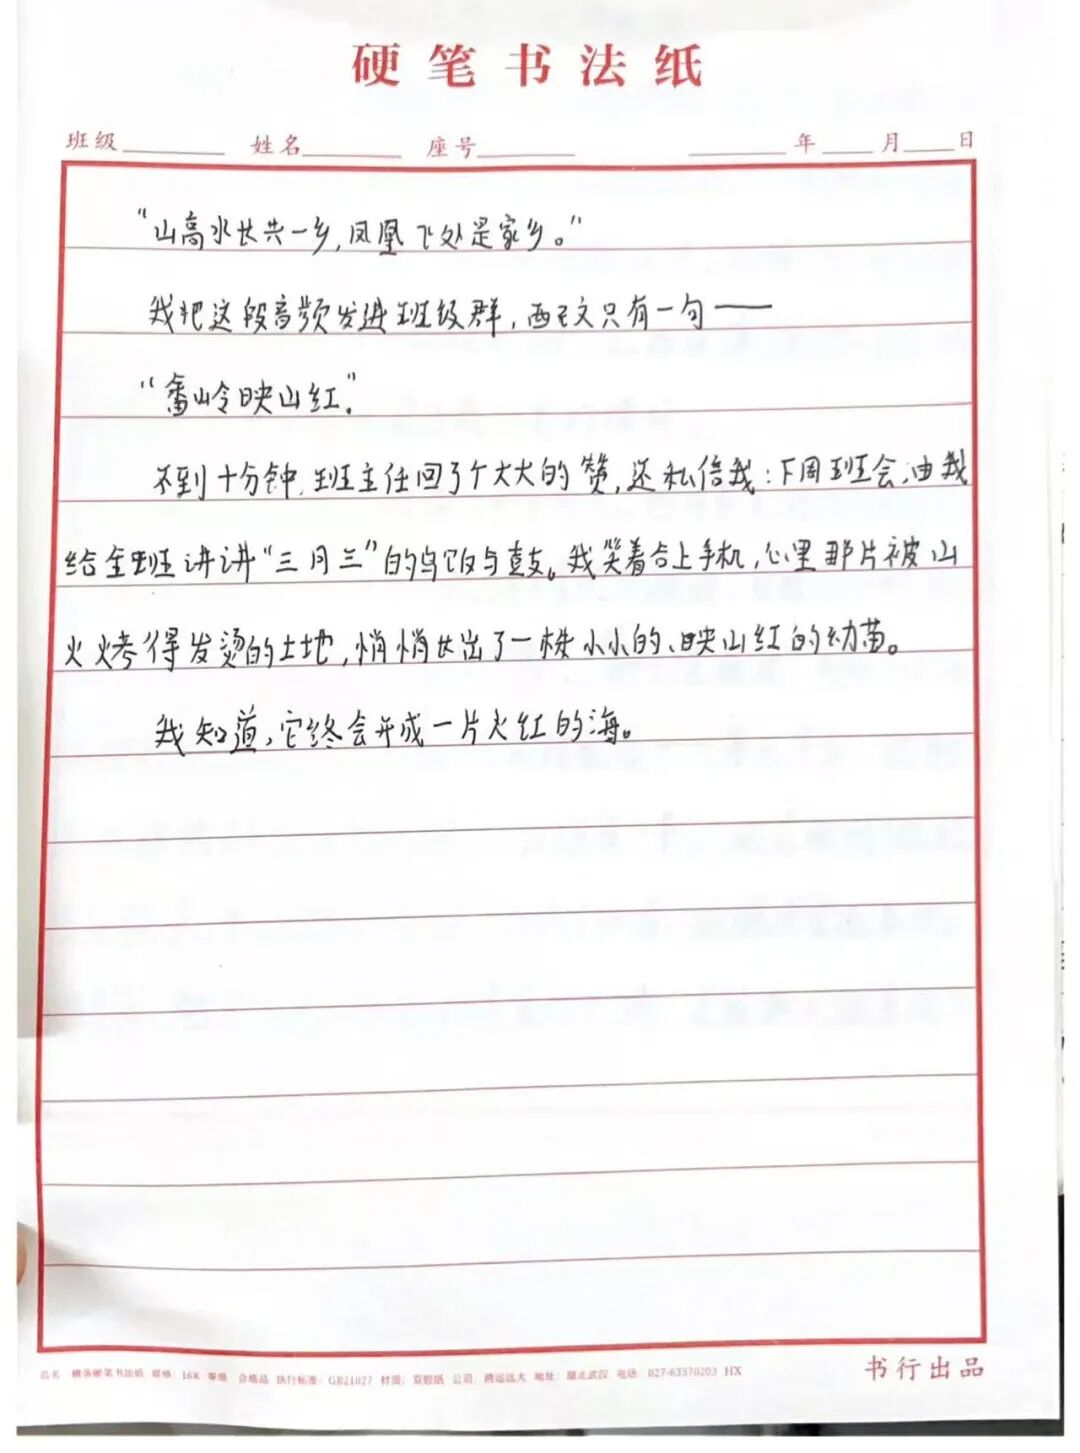 硬笔书法纸
班级 姓名 座号 年 月 日
“山高水长共一乡，凤凰飞处是家乡。”
我把这段音频发进班级群，配文只有一句——
“畲岭映山红”。
不到十分钟，班主任回了个大大的赞，还私信我：下周班会，由我
给全班讲讲“三月三”的乌饭与鼓。我笑着合上手机，心里那片被山
火烤得发烫的土地，悄悄长出了一株小小的、映山红的幼苗。
我知道，它终会开成一片火红的海。
品名：横条硬笔书法纸 规格：16K 等级：合格品 执行标准：GB21027 材质：双胶纸 公司：鸿运远大 地址：湖北武汉 电话：027-63370203 HX
书行出品